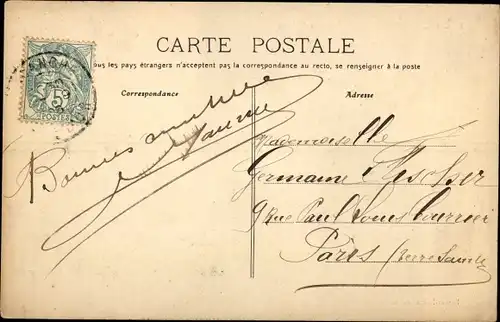 CARTE POSTALE
Tous les pays étrangers n'acceptent pas la correspondance au recto, se renseigner à la poste
Correspondance
Adresse
5
POSTES
Bonnes
Mademoiselle
Germaine
9 Rue Paul Louis Courrier
Paris